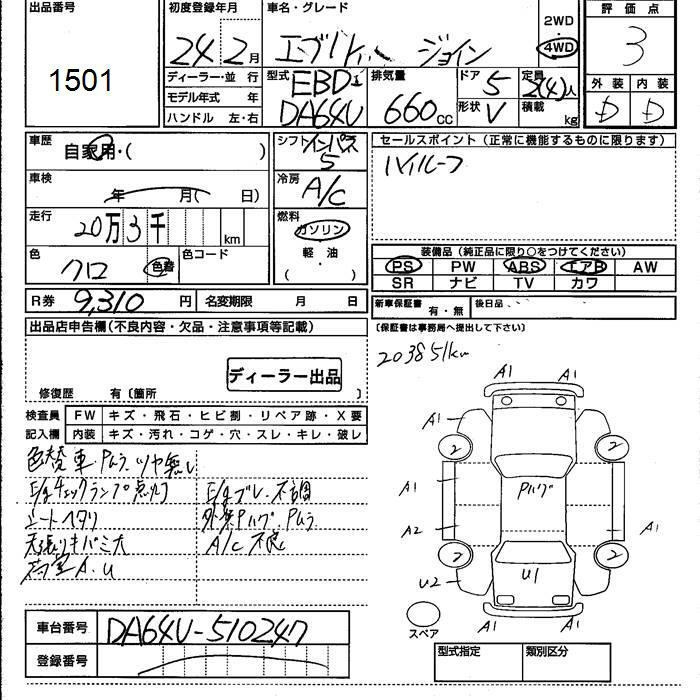 出品番号 初度登録年月 車名・グレード 2WD 評価点
1501 24年2月 エブリイバン ジョイン 4WD 3
ディーラー・並行 型式 EBD 排気量 ドア 5 定員 2(4)人 外装 内装
モデル年式 年 DA64V 660cc 形状 V 積載 kg D D
ハンドル 左・右
車歴 自家用・( ) シフト インパネ5 セールスポイント(正常に機能するものに限ります)
ハイルーフ
車検 年 月( 日) 冷房 A/C
走行 20万3千 km 燃料 ガソリン
軽・油
( )
色 クロ 色替 色コード 装備品(純正品に限り○をつけてください)
PS PW ABS エアB AW
SR ナビ TV カワ
R券 9,310円 名変期限 月 日 新車保証書 有・無 後日品
出品店申告欄(不良内容・欠品・注意事項等記載) (保証書は事務局へ提出して下さい)
203851km
ディーラー出品
修復歴 有〔箇所 〕
検査員 FW キズ・飛石・ヒビ割・リペア跡・X要
記入欄 内装 キズ・汚れ・コゲ・穴・スレ・キレ・破レ
色替車 Pムラ ツヤ無し
E/gチェックランプ点灯 E/gブレ 不調
シートヘタリ 外装Pハゲ、Pムラ
天張りキバミ大 A/C不良
荷室A.U
A1 A1
A1 2 2
A1 Pハゲ
A2 A1
2 2
U2 U1
A1 A1
スペア
車台番号 DA64V-510247
登録番号
型式指定 類別区分